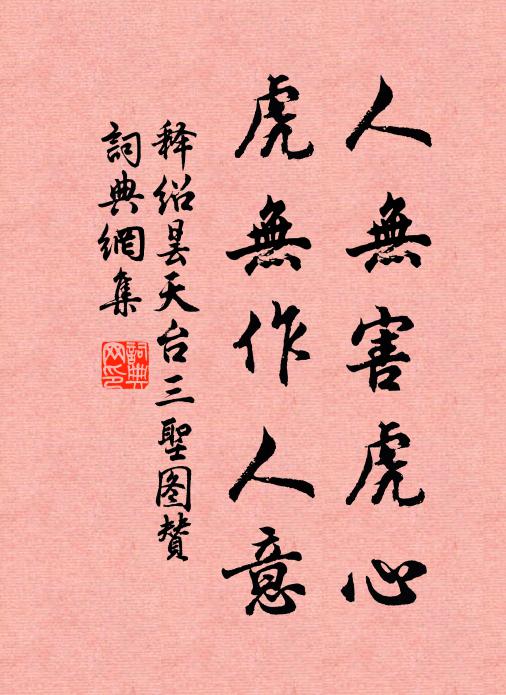 人無害虎心
虎無作人意
释绍昙天台三聖图賛
詞典網集
詞典網印